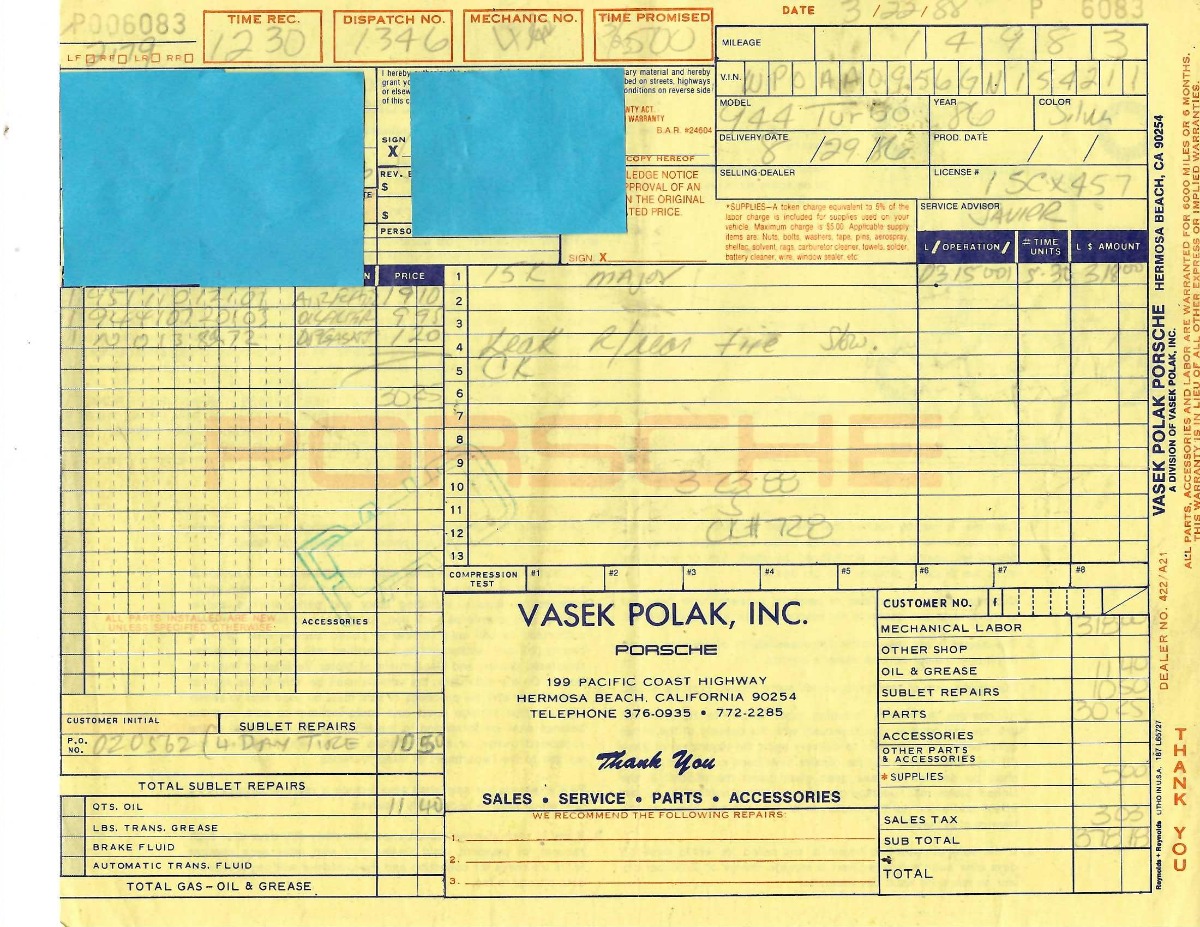 P006083
TIME REC.
1230
DISPATCH NO.
1346
MECHANIC NO.
TIME PROMISED
500
DATE 3/22/88 P 6083
LF RF LR RR
MILEAGE 14983
V.I.N. WP0AA0956GN154211
MODEL 944 Turbo YEAR 86 COLOR Silver
DELIVERY DATE 8/29/86 PROD. DATE / /
SELLING-DEALER
LICENSE # 1SCX457
SERVICE ADVISOR JAVIER
I hereby
grant yo
or elsew
of this c
ary material and hereby
bed on streets, highways
onditions on reverse side
NTY ACT.
WARRANTY
B.A.R. #24604
SIGN X
COPY HEREOF
REV. E
$
$
PERSO
LEDGE NOTICE
PPROVAL OF AN
N THE ORIGINAL
TED PRICE.
SIGN. X
*SUPPLIES—A token charge equivalent to 5% of the
labor charge is included for supplies used on your
vehicle. Maximum charge is $5.00. Applicable supply
items are. Nuts, bolts, washers, tape, pins, aerospray,
shellac, solvent, rags, carburetor cleaner, towels, solder,
battery cleaner, wire, window sealer, etc.
L/OPERATION/ # TIME UNITS L $ AMOUNT
N PRICE
1 15K major 0315001 5.30 318 00
2
3
4 Leak R/rear tire slow.
5 CK
6
7
8
9
10 3-23-88
11
12 CL# 728
13
1910
1 94410720103 OILFILTER 9 95
1 N0138272 1 20
30 25
PORSCHE
ALL PARTS INSTALLED ARE NEW
UNLESS SPECIFIED OTHERWISE.
ACCESSORIES
COMPRESSION TEST #1 #2 #3 #4 #5 #6 #7 #8
VASEK POLAK, INC.
PORSCHE
199 PACIFIC COAST HIGHWAY
HERMOSA BEACH, CALIFORNIA 90254
TELEPHONE 376-0935 • 772-2285
Thank You
SALES • SERVICE • PARTS • ACCESSORIES
WE RECOMMEND THE FOLLOWING REPAIRS:
1.
2.
3.
CUSTOMER INITIAL SUBLET REPAIRS
P.O. NO. 020562 10 50
TOTAL SUBLET REPAIRS
QTS. OIL 11 40
LBS. TRANS. GREASE
BRAKE FLUID
AUTOMATIC TRANS. FLUID
TOTAL GAS—OIL & GREASE
CUSTOMER NO. f
MECHANICAL LABOR 318 00
OTHER SHOP
OIL & GREASE 11 40
SUBLET REPAIRS 10 50
PARTS 30 25
ACCESSORIES
OTHER PARTS & ACCESSORIES
*SUPPLIES 5 00
SALES TAX 3 03
SUB TOTAL 378 18
TOTAL
VASEK POLAK PORSCHE HERMOSA BEACH, CA 90254
A DIVISION OF VASEK POLAK, INC.
DEALER NO. 422/A21
ALL PARTS, ACCESSORIES AND LABOR ARE WARRANTED FOR 6000 MILES OR 6 MONTHS.
THIS WARRANTY IS IN LIEU OF ALL OTHER EXPRESS OR IMPLIED WARRANTIES.
Reynolds + Reynolds LITHO IN U.S.A. 187 L65727
THANK YOU